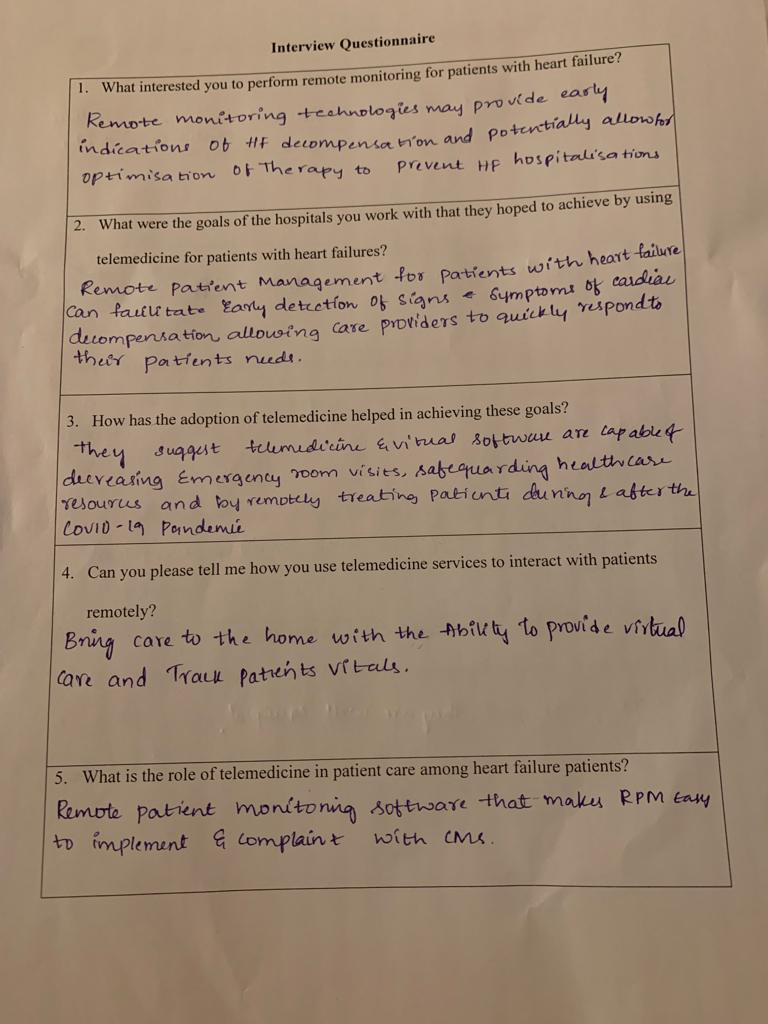 Interview Questionnaire
1. What interested you to perform remote monitoring for patients with heart failure?
Remote monitoring technologies may provide early
indications of HF decompensation and potentially allow for
optimisation of Therapy to prevent HF hospitalisations
2. What were the goals of the hospitals you work with that they hoped to achieve by using
telemedicine for patients with heart failures?
Remote patient Management for patients with heart failure
Can facilitate Early detection of signs & symptoms of cardiac
decompensation, allowing care providers to quickly respond to
their patients needs.
3. How has the adoption of telemedicine helped in achieving these goals?
They suggest telemedicine & vitual software are capable of
decreasing Emergency room visits, safeguarding healthcare
resources and by remotely treating patients during & after the
COVID-19 Pandemic
4. Can you please tell me how you use telemedicine services to interact with patients
remotely?
Bring care to the home with the Ability to provide virtual
care and Track patients vitals.
5. What is the role of telemedicine in patient care among heart failure patients?
Remote patient monitoring software that makes RPM Easy
to implement & complaint with CMS.